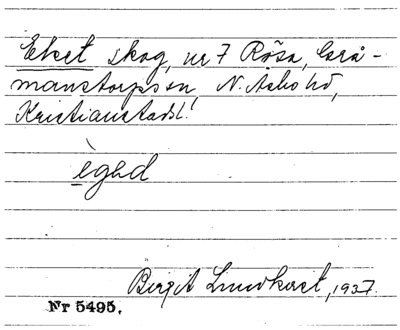 Eket skog, nr 7 Rösa, Grå-
manstorps sn, N. Åsbo hd,
Kristianstads l.
ègəd
Birgit Lundkvist, 1937.
Nr 5495.